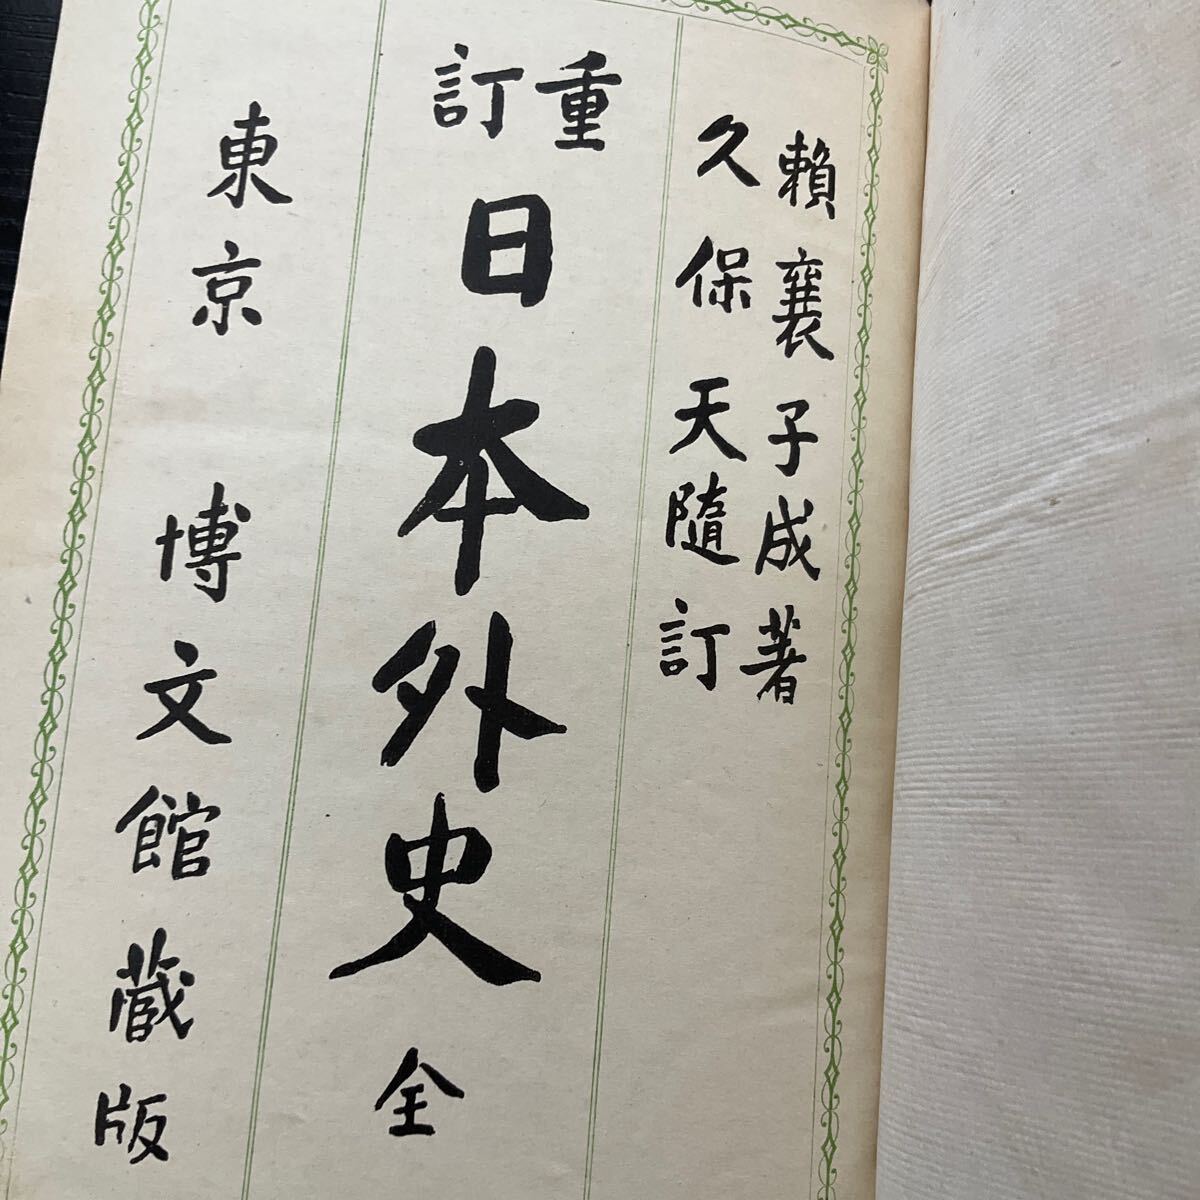 賴襄子成著
久保天隨訂
重訂
日本外史 全
東京 博文館蔵版